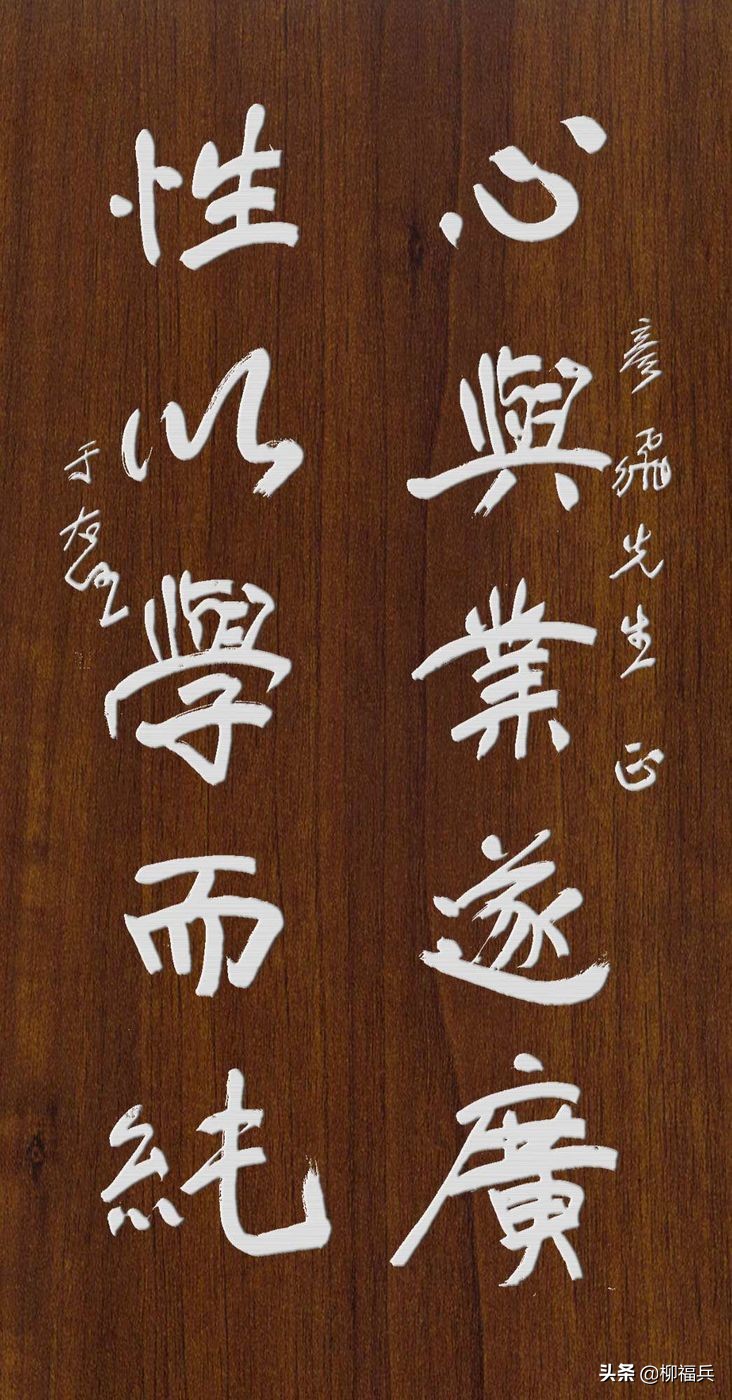 彥飛先生正
心與業遂廣
性以學而純
于右任
头条 @柳福兵